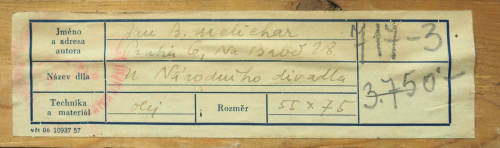 Jméno a adresa autora Jan B. Melichar
Praha 6, Na Bavě 28
717-3
Název díla U Národního divadla
3.750.-
Technika a materiál olej Rozměr 55 x 75
vět 06 10937 57